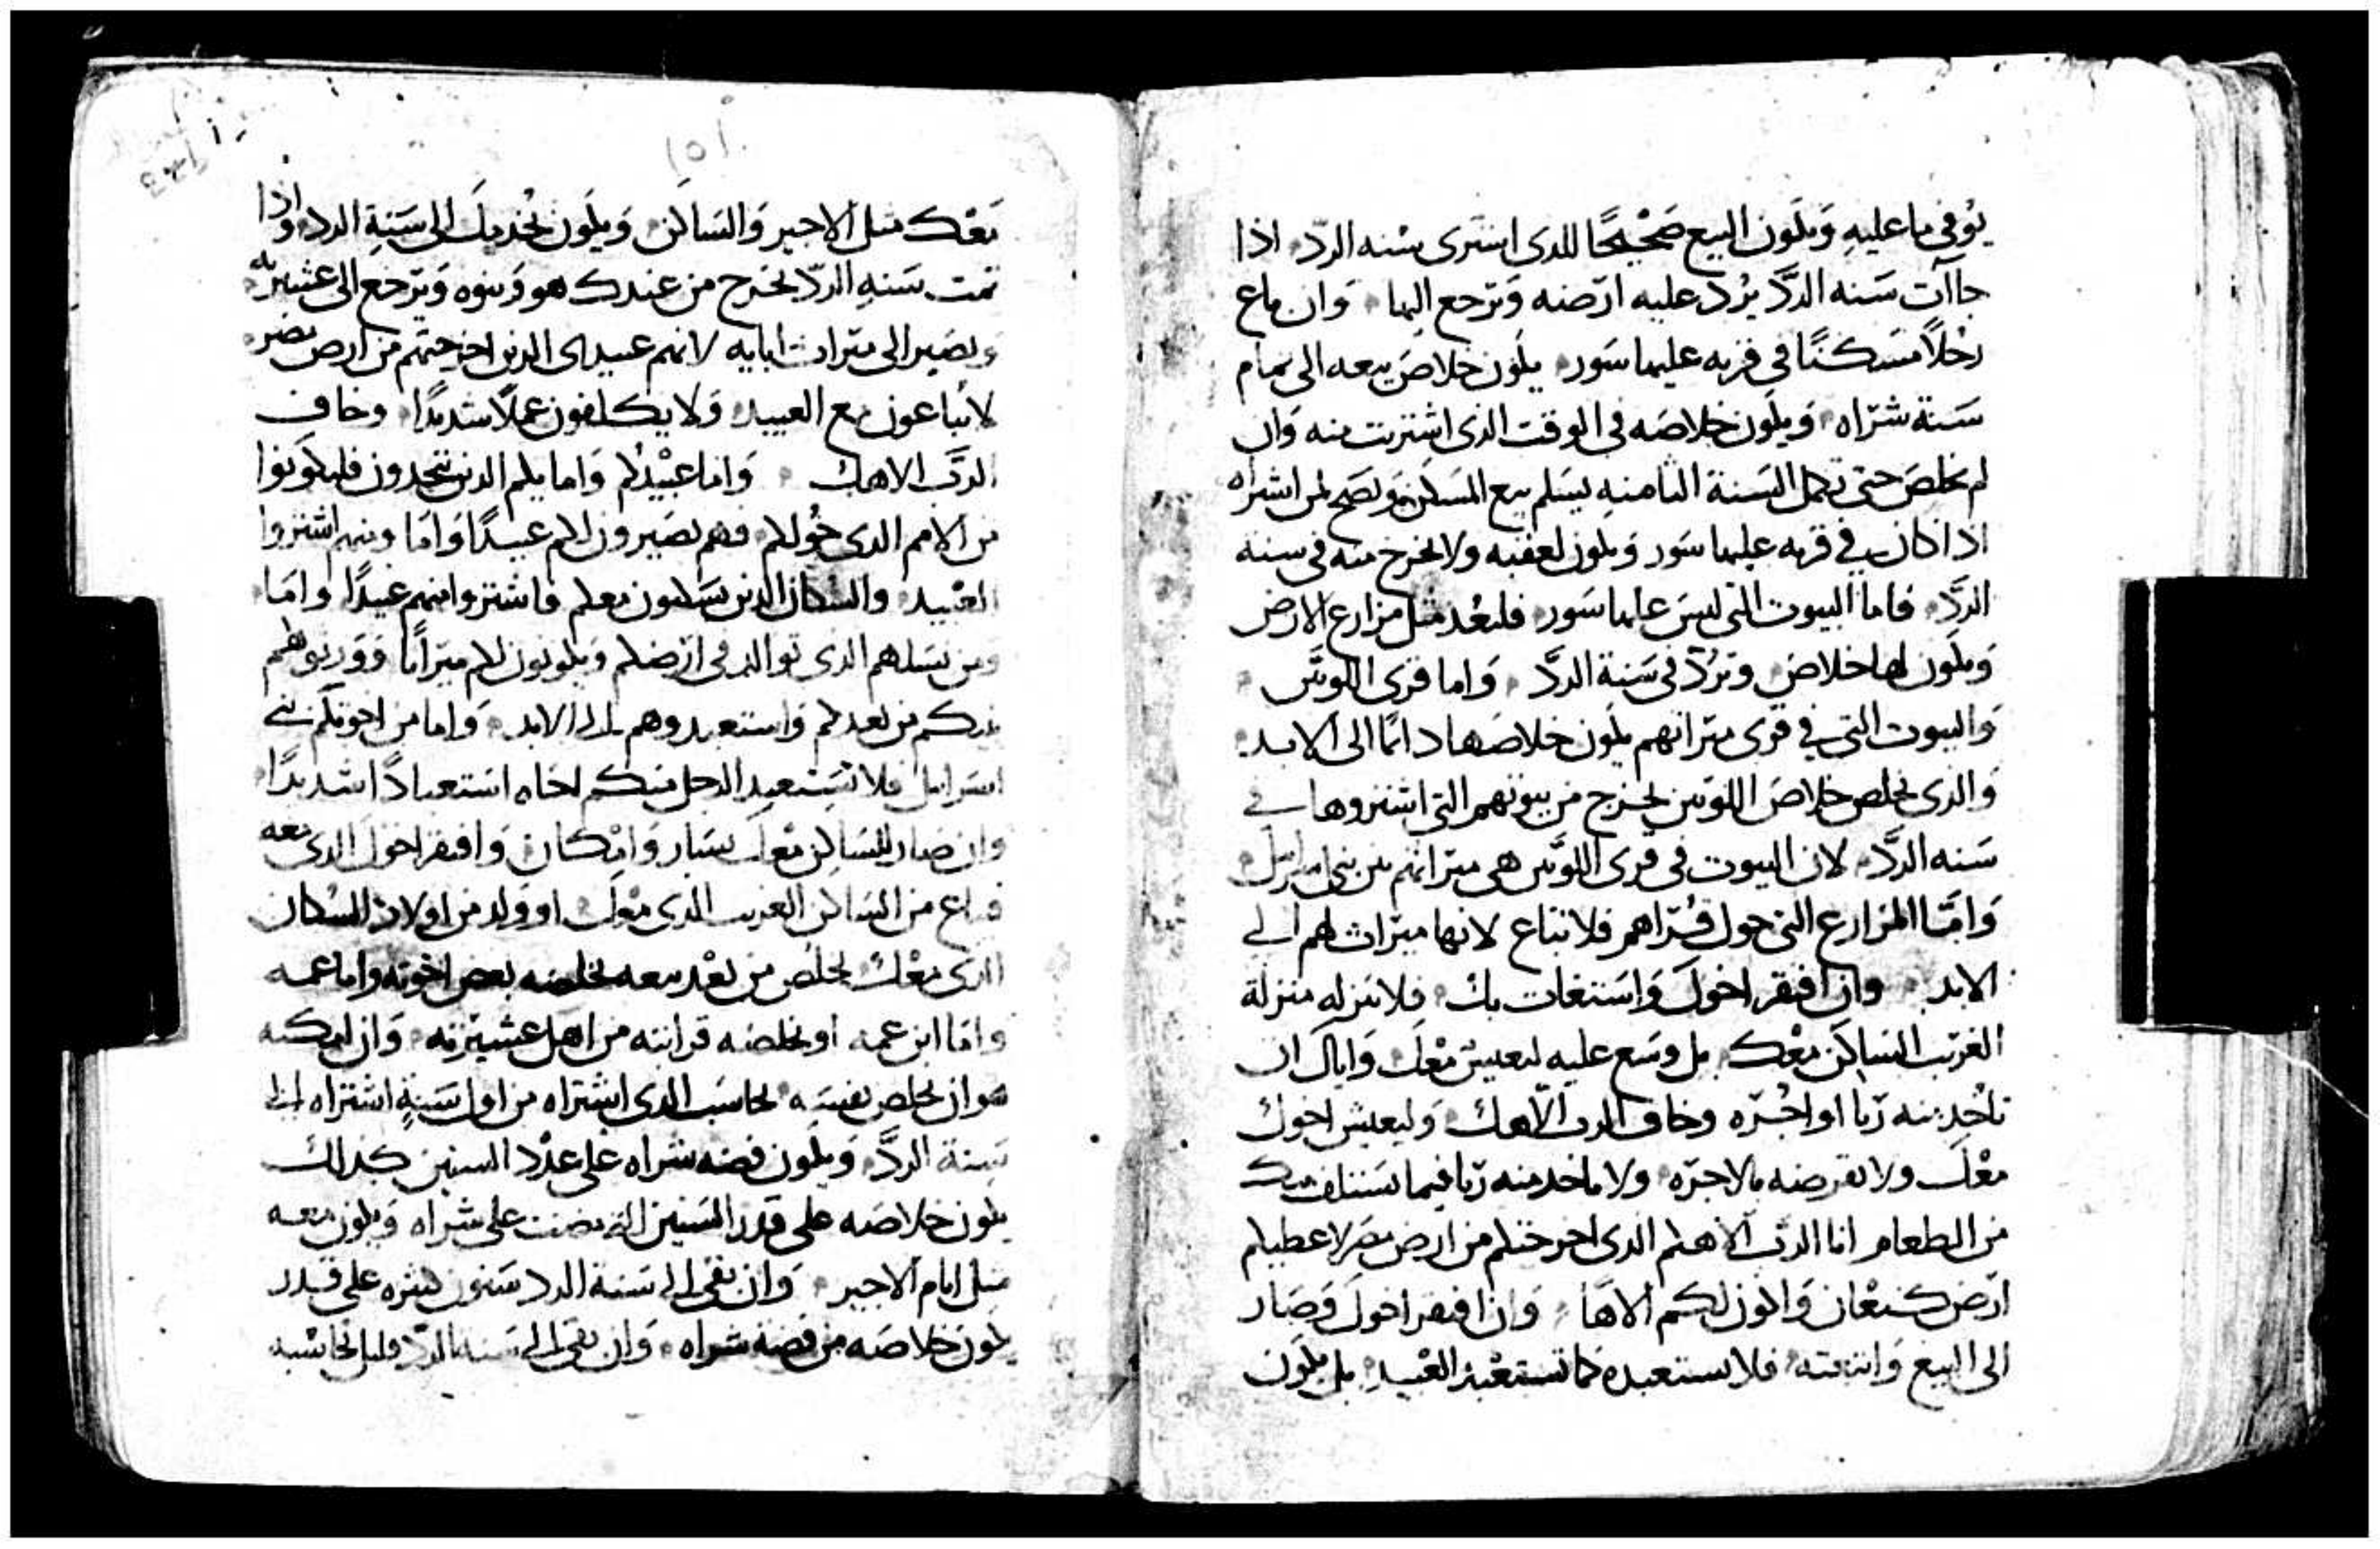 يوفي ما عليه وَيكون البيع صَحيْحًا للدى اشترى سْنه الردّ اذا
جاآت سَنه الردَّ يُرد عليه ارّضه وَترجع اليها وَان باع
رجْلاً مسَكنًا في قريه عليها سَور يكون خلاصَ بيعه الى تمام
سَنة شرّاه وَيكون خلاصَه في الوقت الذى اشتريت منه وَان
لم يخلصَ حتى تكمل السَنة الثامنهِ يسَلم بيع المسَكن وَيصَح لمن اشتراه
اذا كان في قريه عليها سَور وَيكون لعقبه ولا يخرج منه في سنه
الردَّ فاما البيوت التي ليسَ عليها سَور فلتعُد مثل مزارع الارض
وَيكون لها خلاص وتُردّ في سَنة الردَّ وَاما قرى اللوتَّين
وَالبيوت التي في قرى ميَراثهم يكون خلاصَها دائمًا الى الابد
وَالدى يخلص خلاصَ اللوّيين يخرج من بيوتهم التى اشتروها في
سَنه الردَّ لان البيوت في قرى اللوَّيين هي ميَراثهم من بني اسرايل
وَامَّا المزارع التى حول قُرّاهم فلا تباع لانها ميَراث لهم الى
الابد وان افتقر اخوكَ وَاسَتغات بك فلا تنزله منزلة
الغريَب السَاكن معْك بل وسَع عليه ليعيش معْكَ وَاياك ان
تاخُد منه ربّا او اجُرّه وخاف الرب الاهك وَليعيش اخوك
معْكَ ولا تقرضه بالاجرّه ولا تاخد منه ربّا فيما يسَتلف منك
من الطعام انا الربّ الاهكم الدى اخرجتكم من ارض مصَر لاعطيكم
ارّض كنعْان وَاكون لكم الاهًا وَان افتقر اخوكَ وَصَار
الى البيع وَابتعته فلا تستعبده كما تستعْبد العْبيد بل يكون
١٥١
معَك مثل الاجير وَالسَاكن وَيكون يُخدمك الى سَنةِ الرد واذا
تمت سَنهِ الردّ يخرج من عندك هو وَبنوه وَيرّجع الى عشيرته
وَيصَير الى ميَرات ابايه لانهم عبيدى الدين اخرجتهم من ارض مصَر
لا يُباعون بيع العبيد وَلا يكلفون عملاً شديدًا وخاف
الربَّ الاهك وَاما عبيْدُكم وَاما يكم الدين تتخدون فليكوَنوا
من الامم الدى حُولكم فهم يصَيرون لكم عبيدًا وَامَا ومنهم اشتروا
العْبيد والسُكان الدين يسَكنون معكم فاشتروا منهم عبيدًا وامَا
ومن نسَلهم الدى توالد في ارّضكم وَيكونون لكم ميرَاثًا وَوَرثوهم
بنيكم من بعدكم وَاستعبدوهم الى الابد وَاما من اخوتكم بني
اسَرايل فلا يسَتعبد الرجل منكم اخاه استعبادًا شديدًا
وان صار للسَاكن معْك يسَار وَامْكان وَافتقر اخوكَ الدى معه
فباع من السَاكن الغريب الدى معْك او وَلد من اولاد السُكان
الدى معْك يخلص من بعْد بيعه يخلصه بعض اخوته واما عمه
وامَا ابن عمه او يخلصه قرابته من اهل عشيرّته وَان امكنه
هو ان يخلص نفسَه يحاسَب الدى اشتراه من اول سَنةٍ اشتراه الى
سَنة الردَّ وَيكون فضه شراه على عدْد السنين كدلك
يكون خلاصَه على قدر السَنين التي مضت على شراه وَيكون معه
مثل ايام الاجير وَان بقى الى سَنة الرد سَنون كثره على قدر
يكون خلاصَه من فضة شراه وَان بقى الى سَنة الردّ قليل يحاسَبه